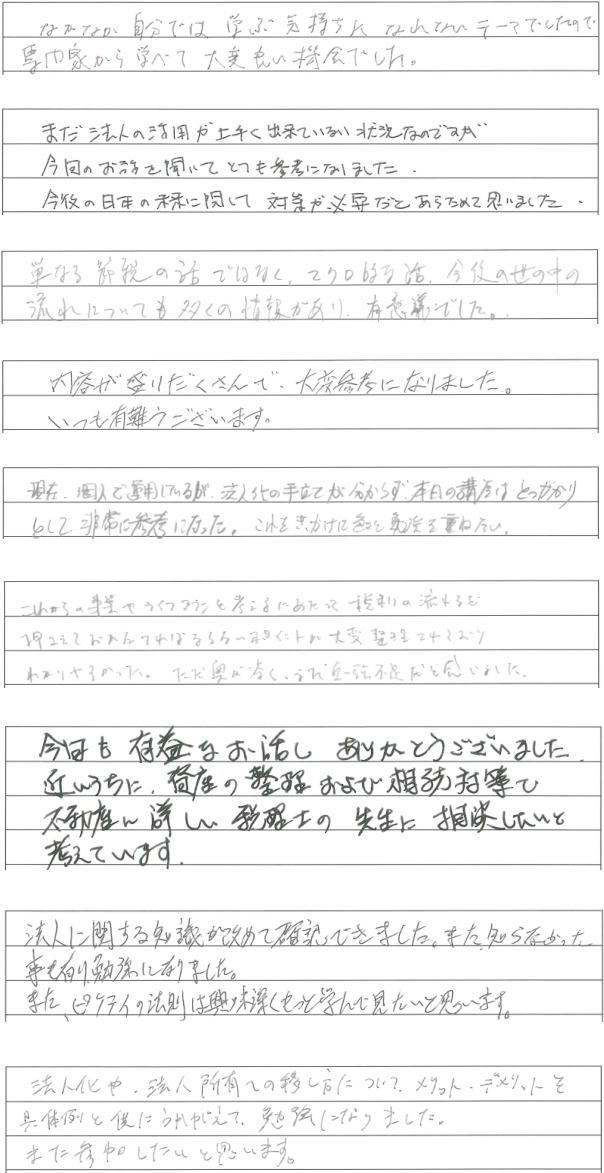 なかなか自分では学ぶ気持ちになれないテーマでしたので
専門家から学べて大変良い機会でした。
まだ法人の活用が上手く出来ていない状況なのですが
今回のお話を聞いてとても参考になりました.
今後の日本の未来に関して対策が必要だとあらためて思いました.
単なる節税の話ではなく、マクロ的な話、今後の世の中の
流れについても多くの情報があり、有意義でした。
内容が盛りだくさんで、大変参考になりました。
いつも有難うございます。
現在、個人で運用しているが、法人化の手立てが分からず、本日の講座はとっかかり
として非常に参考になった。これをきっかけに色々勉強を重ねたい。
これからの事業やライフプランを考えるにあたって税制の流れを
押さえておかなければならないポイントが大変整理されており
わかりやすかった。ただ奥が深く、まだ勉強不足だと感じました。
今日も有益なお話しありがとうございました.
近いうちに、資産の整理および相続対策で
不動産に詳しい税理士の先生に相談したいと
考えています.
法人に関する知識が改めて確認できました。また、知らなかった
事も有り、勉強になりました。
また、「ピケティの法則」は興味深くもっと学んで見たいと思います。
法人化や、法人所有への移し方について、メリット・デメリットを
具体例と供にうかがえて、勉強になりました。
また参加したいと思います。